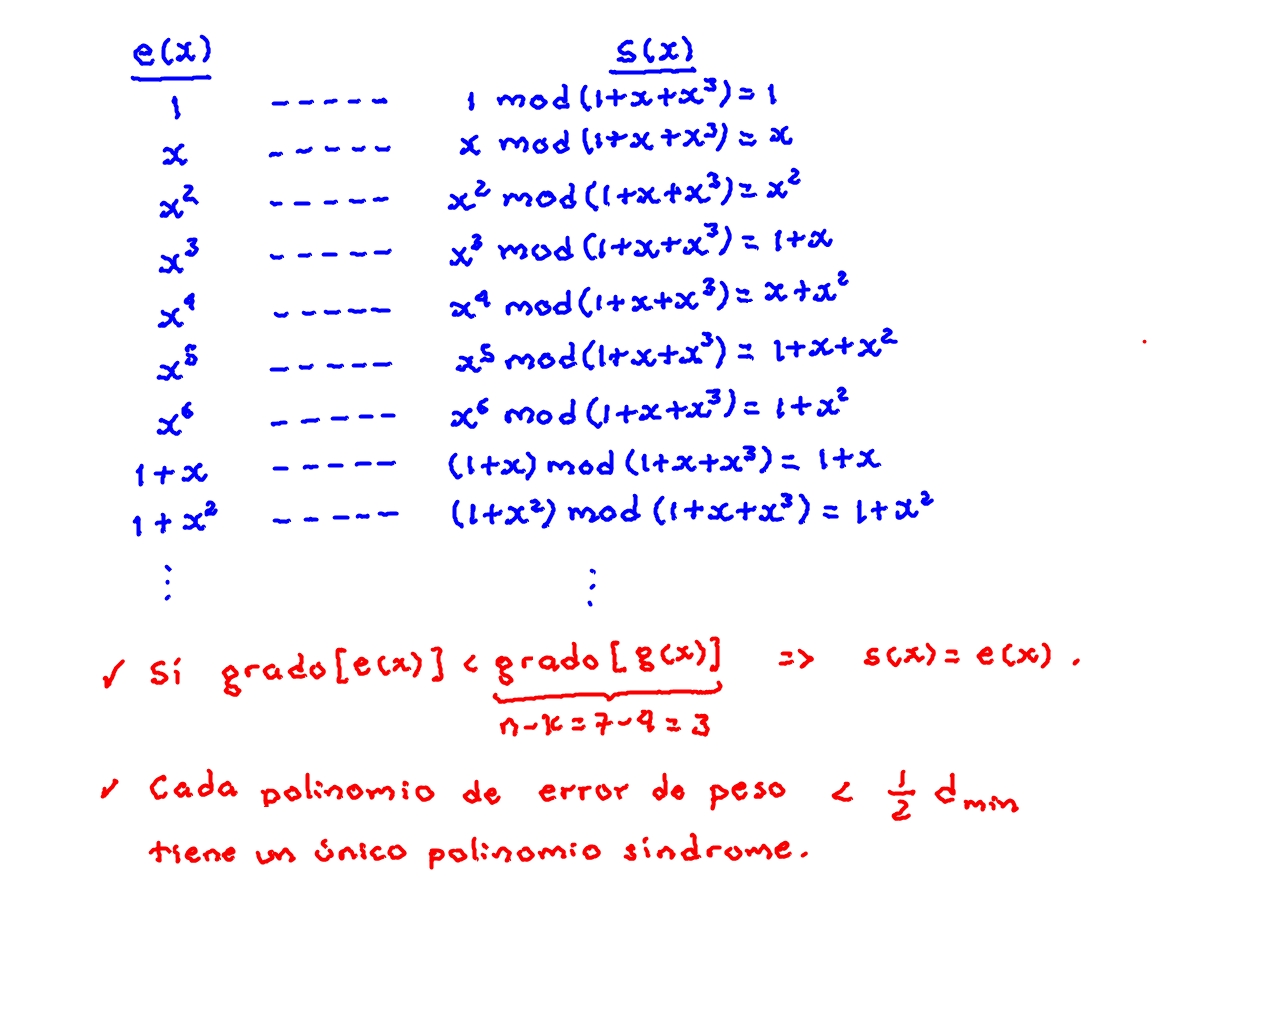 e(x) s(x)
1 ----- 1 mod (1+x+x³) = 1
x ----- x mod (1+x+x³) = x
x² ----- x² mod (1+x+x³) = x²
x³ ----- x³ mod (1+x+x³) = 1+x
x⁴ ----- x⁴ mod (1+x+x³) = x+x²
x⁵ ----- x⁵ mod (1+x+x³) = 1+x+x²
x⁶ ----- x⁶ mod (1+x+x³) = 1+x²
1+x ----- (1+x) mod (1+x+x³) = 1+x
1+x² ----- (1+x²) mod (1+x+x³) = 1+x²
⋮ ⋮
✓ Sí grado[e(x)] < grado[g(x)] => s(x) = e(x).
n-k=7-4=3
✓ Cada polinomio de error de peso < 1/2 dmin
tiene un único polinomio síndrome.